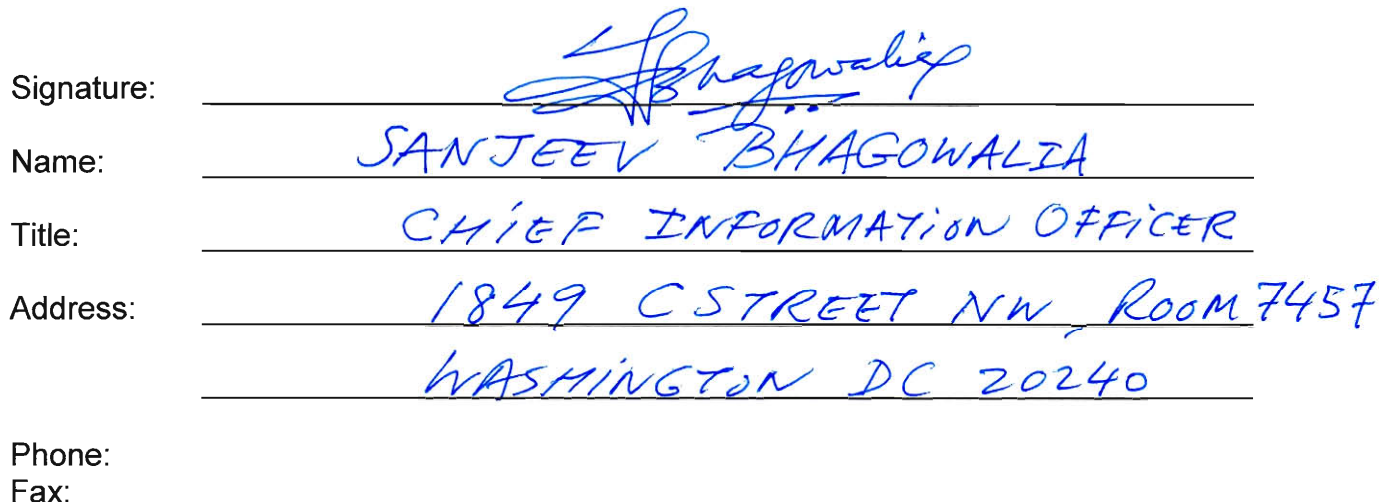 Signature: Bhagowalia
Name: SANJEEV BHAGOWALIA
Title: CHIEF INFORMATION OFFICER
Address: 1849 C STREET NW, ROOM 7457
WASHINGTON DC 20240
Phone:
Fax: